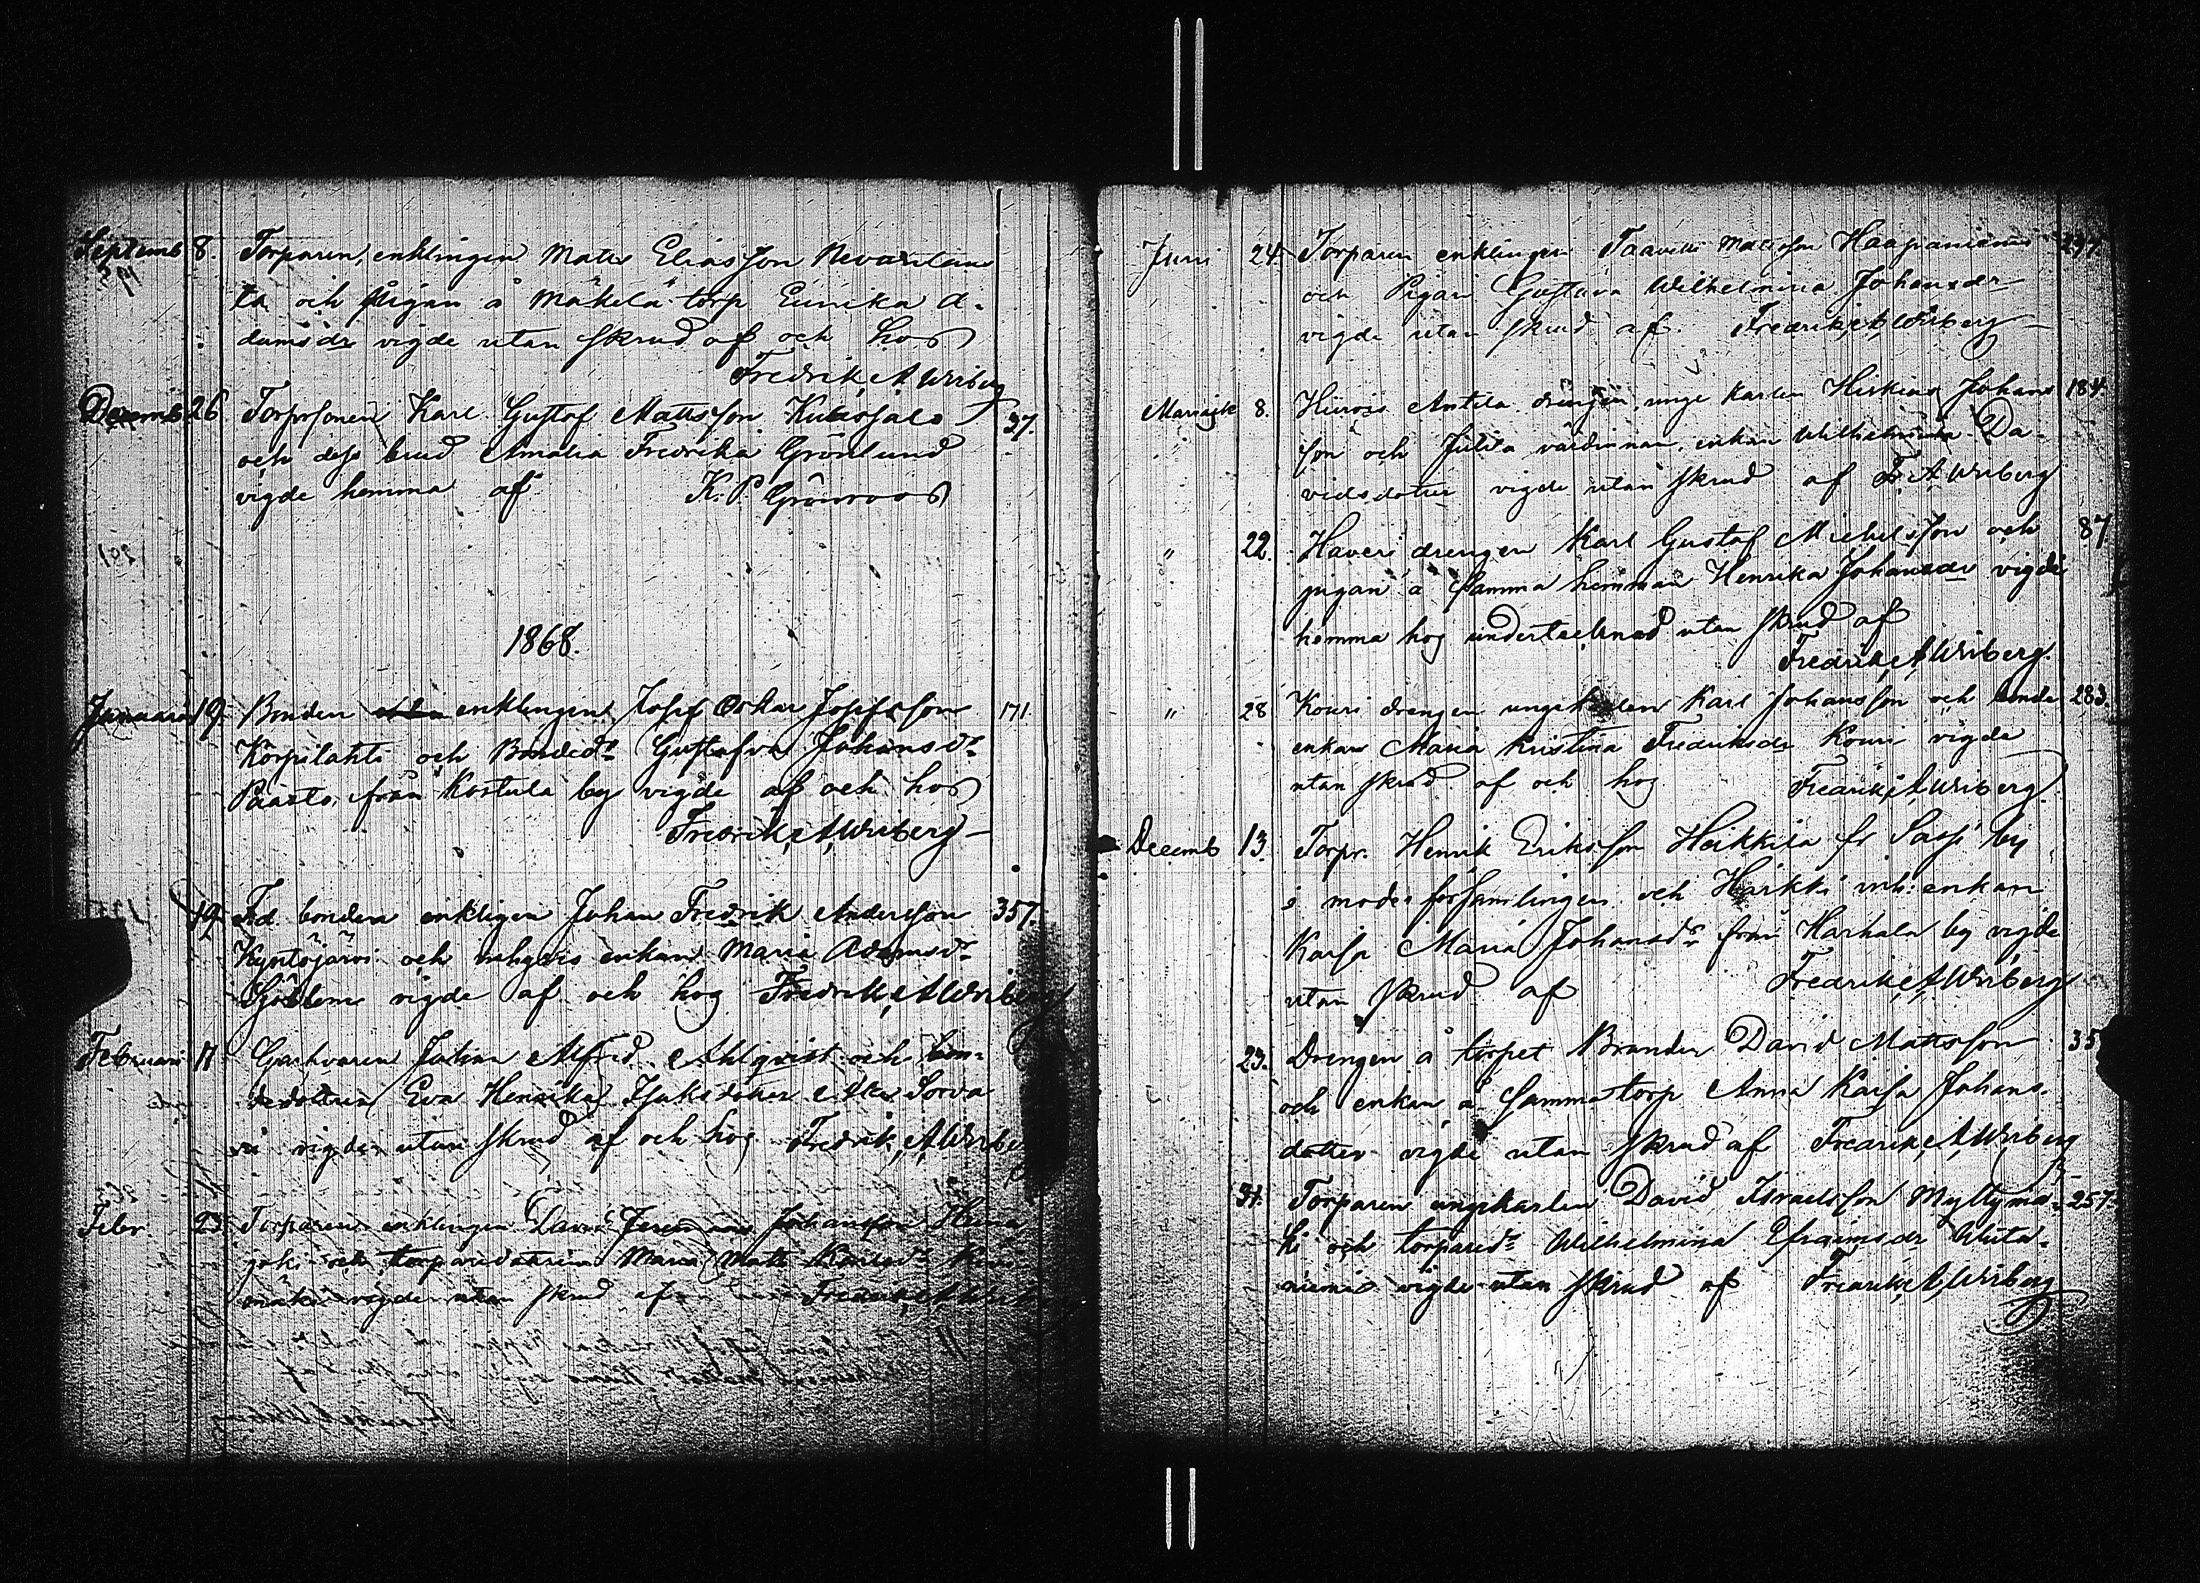 Septemb 8. Torparen, enklingen Mats Eliasson Nevanlam
ta och pigan å Mäkelä torp Eunika A-
damsdr vigde utan skrud af och hos
Fredrik A Wriberg
Decemb 26 Torprsonen Karl Gustof Mattsson 37.
och dess brud Amalia Fredrika Grönlund
vigde hemma af K. P. Grönroos
1868.
Januari 19. Bonden enklingen Josef Oskar Josefsson 171
Korpilahti och Bonded:r Gustafva Johansd:r
Paasto från Kostula by vigde af och hos
Fredrik A Wriberg
19. F.d. bonden enkligen Johan Fredrik Andersson 357.
Kyntöjärvi och enkan Maria Adamsd:r
vigde af och hos Fredrik A Wriberg
Februari 11 Garfvaren Johan Alfred Ahlqvist och bon-
dedottren Eva Henrika Isaksdotter Sorva
vigde utan skrud af och hos Fredrik A Wriberg
Febr. 23 Torparen enklingen David Johansson Heina
joki och torparedottren Maria
mäki vigde utan skrud af Fredrik A Wriberg
Juni 24. Torparen enklingen Taavetti Mattsson Haapaniemi 297
och Pigan Gustava Wilhelmina Johansdr
vigde utan skrud af Fredrik A Wriberg
8. Antila drengen, unge karlen Hiskias Johans 184.
son och värdinnan, enkan Wilhelmina Da-
vidsdotter vigde utan skrud af Fr. A Wriberg
" 22. Haveri drengen Karl Gustaf Michelsson och 87
pigan å samma hemman Henrika Johansdr vigde
hemma hos undertecknad utan skrud af
Fredrik A Wriberg.
" 28 Kouri drengen ungekarlen Karl Johansson och bonde 283.
enkan Maria Kristina Fredriksdr Kouri vigde
utan skrud af och hos Fredrik A Wriberg.
Decemb 13. Torpr. Henrik Eriksson Heikkilä fr Sasi by
i moderförsamlingen och Harkki inh: enkan
Kaisa Maria Johansd:r från Harhala by vigde
utan skrud af Fredrik A Wriberg
23. Drengen å torpet Brander David Mattsson 35
och enkan å samma torp Anna Kaisa Johans-
dotter vigde utan skrud af Fredrik A Wriberg
31. Torparen ungekarlen David Israelsson Myllymä- 257.
ki och torpared:r Wilhelmina Efraimsdr
niemi vigde utan skrud af Fredrik A Wriberg